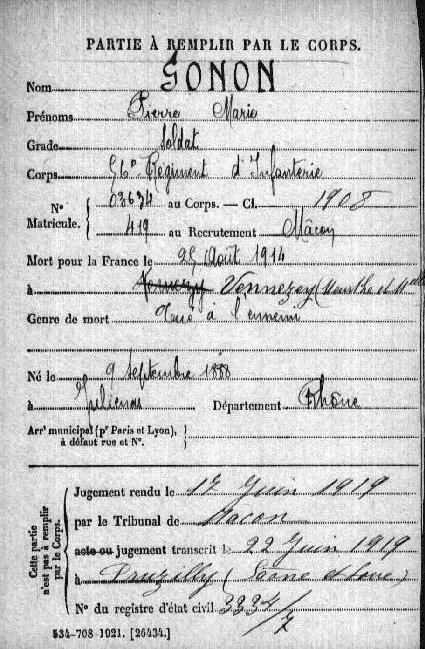 PARTIE À REMPLIR PAR LE CORPS.
Nom GONON
Prénoms Pierre Marie
Grade Soldat
Corps 56e Régiment d'Infanterie
N° Matricule. 03634 au Corps. — Cl. 1908
419 au Recrutement Mâcon
Mort pour la France le 25 Août 1914
à Vennezey (Meurthe et Mlle
Genre de mort Tué à l'ennemi
Né le 9 Septembre 1888
à Julienas Département Rhône
Arrt municipal (pr Paris et Lyon),
à défaut rue et N°.
Cette partie n'est pas à remplir par le Corps.
Jugement rendu le 17 Juin 1919
par le Tribunal de Macon
acte ou jugement transcrit le 22 Juin 1919
à Pruzilly (Saône et Loire)
N° du registre d'état civil 3234/7
534-708-1921. [26434.]